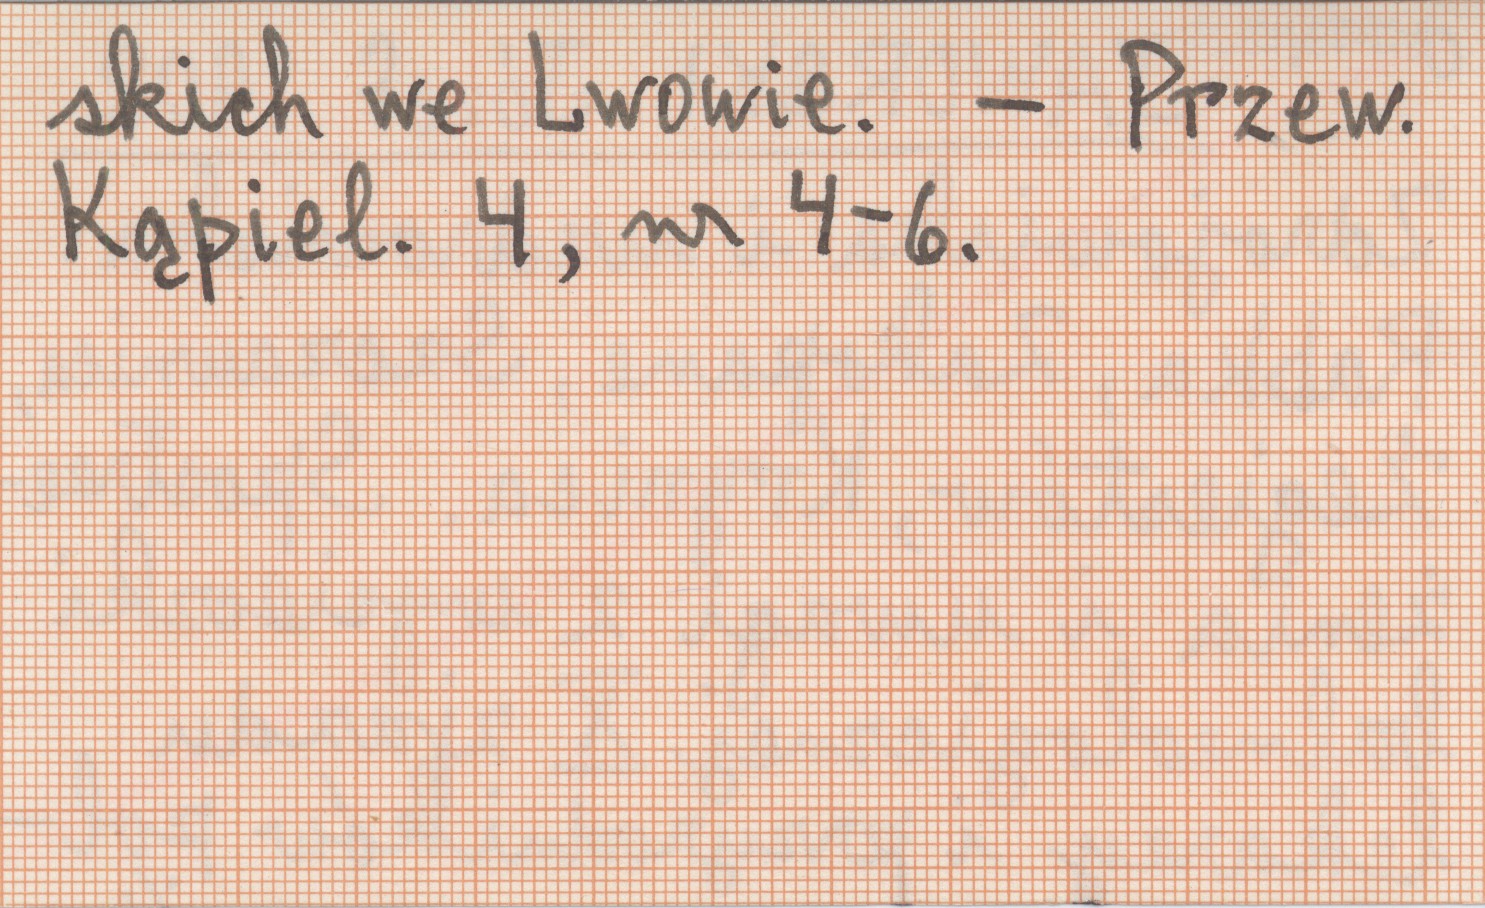 skich we Lwowie. – Przew.
Kąpiel. 4, nr 4-6.